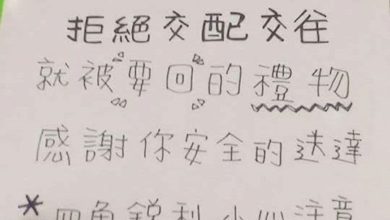 拒絕交配交往
就被要回的禮物
感謝你安全的送達
*四角銳利 小心注意